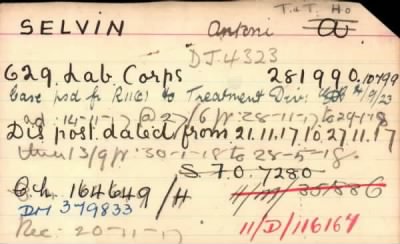 T. & T. Ho
SELVIN Antoni a
DJ.4323
629. Lab. Corps 281990. 10499
Case psd fr R1161 to Treatment Div: 9/23
ad. 14-11-17 @ 27/6 pr. 28-11-17 to 24-1-18
Dis post dated from 21.11.17 to 27.11.17
then 13/9 pr. 30-1-18 to 28-5-18.
S 7.0.7280
Ch. 164649/H H/M/351886
DM 379833
Rec: 20-11-17 11/D/116164